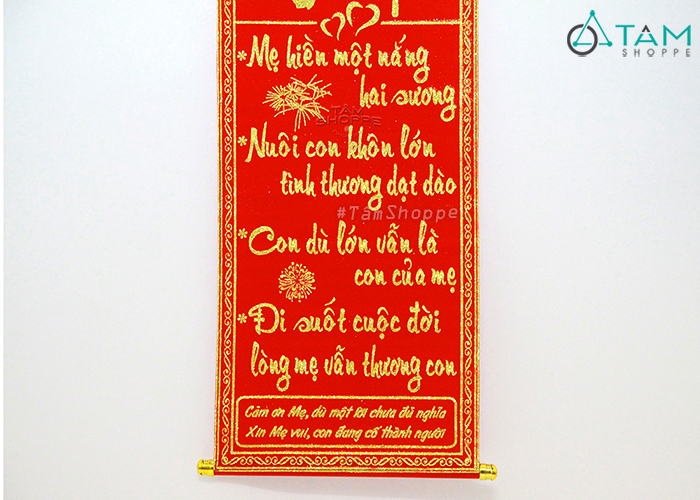 TAM
SHOPPE
*Mẹ hiền một nắng
hai sương
TÂM
SHOPPE
*Nuôi con khôn lớn
tình thương dạt dào
#TâmShoppe
*Con dù lớn vẫn là
con của mẹ
*Đi suốt cuộc đời
lòng mẹ vẫn thương con
Cảm ơn Mẹ, dù một lời chưa đủ nghĩa
Xin Mẹ vui, con đang cố thành người